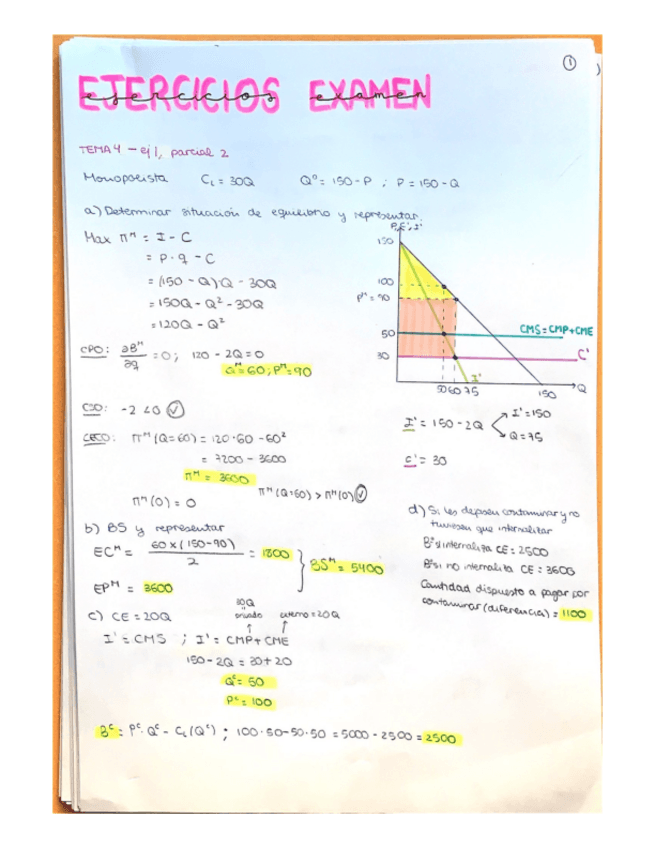 ①
EJERCICIOS EXAMEN
ejercicios examen
TEMA 4 - ej 1, parcial 2
Monopolista C_L = 30Q Q^D = 150 - P ; P = 150 - Q
a) Determinar situación de equilibrio y representar.
Max π^M = I - C
= P · q - C
= (150 - Q)·Q - 30Q
= 150Q - Q² - 30Q
= 120Q - Q²
CPO: ∂B^M/∂q = 0; 120 - 2Q = 0
Q^M = 60; P^M = 90
CSO: -2 < 0 ✓
CECO: π^M (Q=60) = 120·60 - 60²
= 7200 - 3600
π^M = 3600
π^M (0) = 0 π^M (Q=60) > π^M (0) ✓
P, C', I'
150
100
P^M = 90
50
30
CMS = CMP + CME
C'
I'
50 60 75 150 Q
I' = 150 - 2Q
I' = 150
Q = 75
C' = 30
b) BS y representar
EC^M = 60 x (150 - 90) / 2 = 1800
BS^M = 5400
EP^M = 3600
c) CE = 20Q
30Q
privado externo = 20Q
I' = CMS ; I' = CMP + CME
150 - 2Q = 30 + 20
Q^C = 50
P^C = 100
B^C = P^C · Q^C - C_L (Q^C) ; 100·50 - 50·50 = 5000 - 2500 = 2500
d) Si les dejasen contaminar y no
tuviesen que internalizar
B^o si internaliza CE = 2500
B^o si no internaliza CE = 3600
Cantidad dispuesto a pagar por
contaminar (diferencia) = 1100